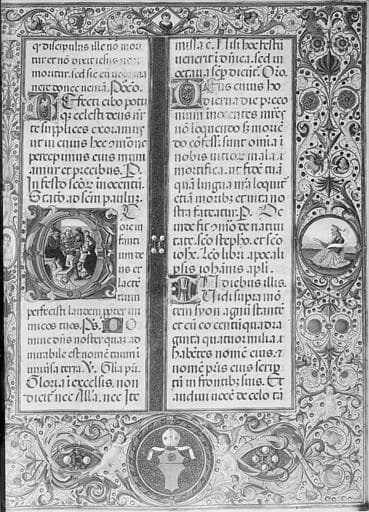 q̃ discipulus ille nõ mori
tur et nõ dixit iesus nõ
moritur. sed sic eũ uolo ma
nere donec ueniã. Pꝰcõ.
Refecti cibo potu
q; celesti deus nr̃
te supplices exoramus
ut in cuius hec cõmõne
percepimus eius muni
amur et precibus. P.
In festo scõr̃ inocentũ.
Statõ. ad sem̃ paulũz.
Ex
ore in
fanti
um de
us et
lactẽ
tium
perfecisti laudem pꝓter ini
micos tuos. Pš. Do
mine dñs noster quaz ad
mirabile est nomẽ tuum ĩ
uniũsa terra. V. Glia pr̃i.
Gloria ĩ excelsis. non
dicit̃ nec Alla. nec Ite
missa ẽ. Nisi hoc festũ
uenerit dñica. sed in
octaua sẽp dicit̃. Oro.
Deus cuius ho
dierna die preco
nium inocentes mr̃es
nõ loquendo sz̃ moriẽ
do cõfessi sunt omĩa ĩ
nobis uitior̃ mala
mortifica. ut fidẽ tuã
quã lingua nr̃a loquit̃
etiã morib; et uita no
stra fateatur. P. De
inde fit cõmõ de natiui
tate. scõ stephõ. et scõ
iohẽ. Lco libri apocali
psis iohanis apli.
In diebus illis.
Vidi supra mõ
tem syon. agnũ stante
et cũ eo centũ quadra
ginta quatuor milia.
habẽtes nomẽ eius. ⁊
nomẽ pr̃is eius scrip
tũ in frontib; suis. Et
audiui uocẽ de celo tã